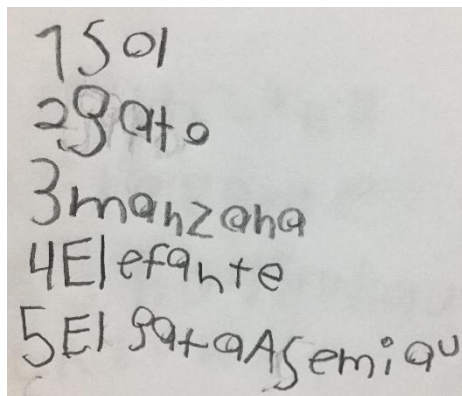 1 sol
2 gato
3 manzana
4 Elefante
5 El gato A Semiau